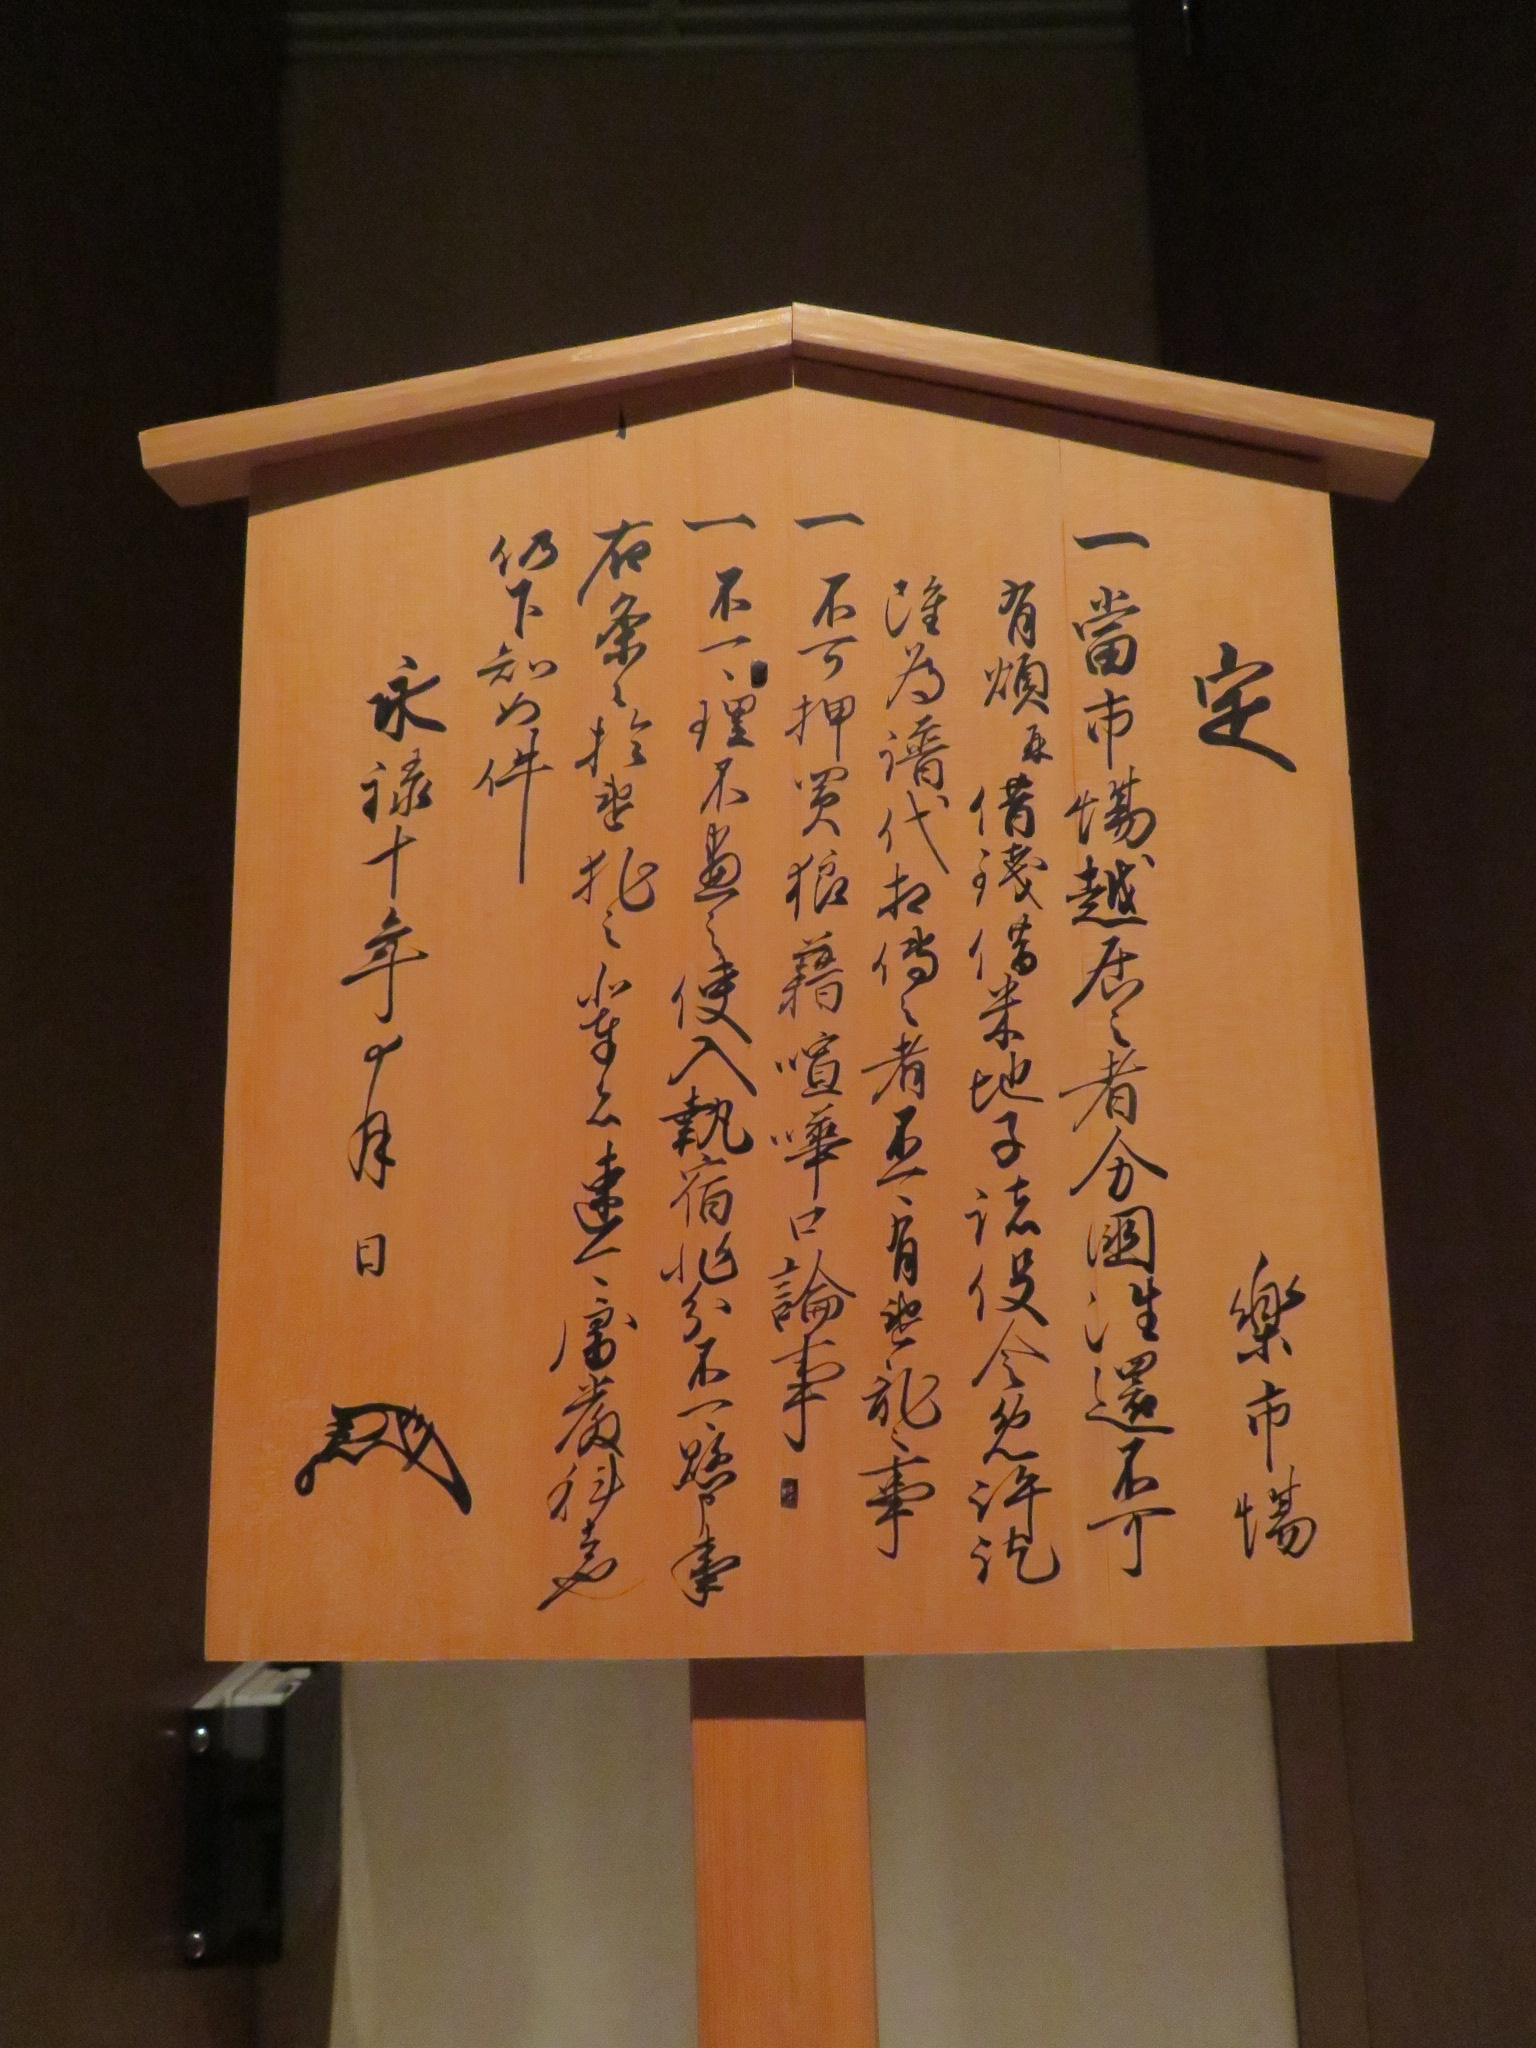 定　樂市場
一當市場越居之者分國往還不可
有煩并借銭借米地子諸役令免許訖
雖為譜代相傳之者不可有違乱之事
一不可押買狼藉喧嘩口論事
一不可理不盡之使入執宿非分不可懸申事
右条々於違犯之輩者速可處厳科者也
仍下知如件
永禄十年十月日